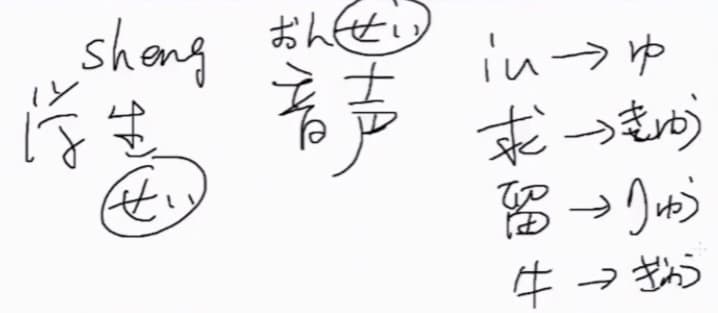 sheng
学生
せい
おんせい
音声
iu→ゆ
求→きゅう
留→りゅう
牛→ぎゅう